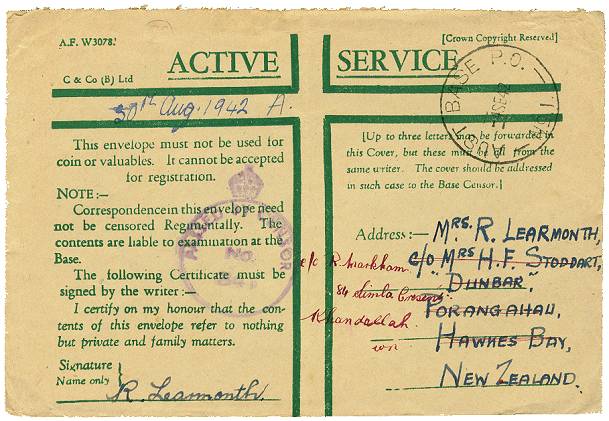 A.F. W3078.
[Crown Copyright Reserved]
ACTIVE SERVICE
C & Co (B) Ltd
30th Aug. 1942 A.
This envelope must not be used for
coin or valuables. It cannot be accepted
for registration.
NOTE:—
Correspondence in this envelope need
not be censored Regimentally. The
contents are liable to examination at the
Base.
The following Certificate must be
signed by the writer:—
I certify on my honour that the con-
tents of this envelope refer to nothing
but private and family matters.
Signature
Name only
R. Learmonth.
BASE P.O.
[Up to three letters may be forwarded in
this Cover, but these must be all from the
same writer. The cover should be addressed
in such case to the Base Censor.]
No.
Address:— MRS. R. LEARMONTH,
C/O MRS H.F. STODDART,
"DUNBAR"
PORANGAHAU,
HAWKES BAY,
NEW ZEALAND.
c/o R. Markham
84 Simla Crescent
Khandallah